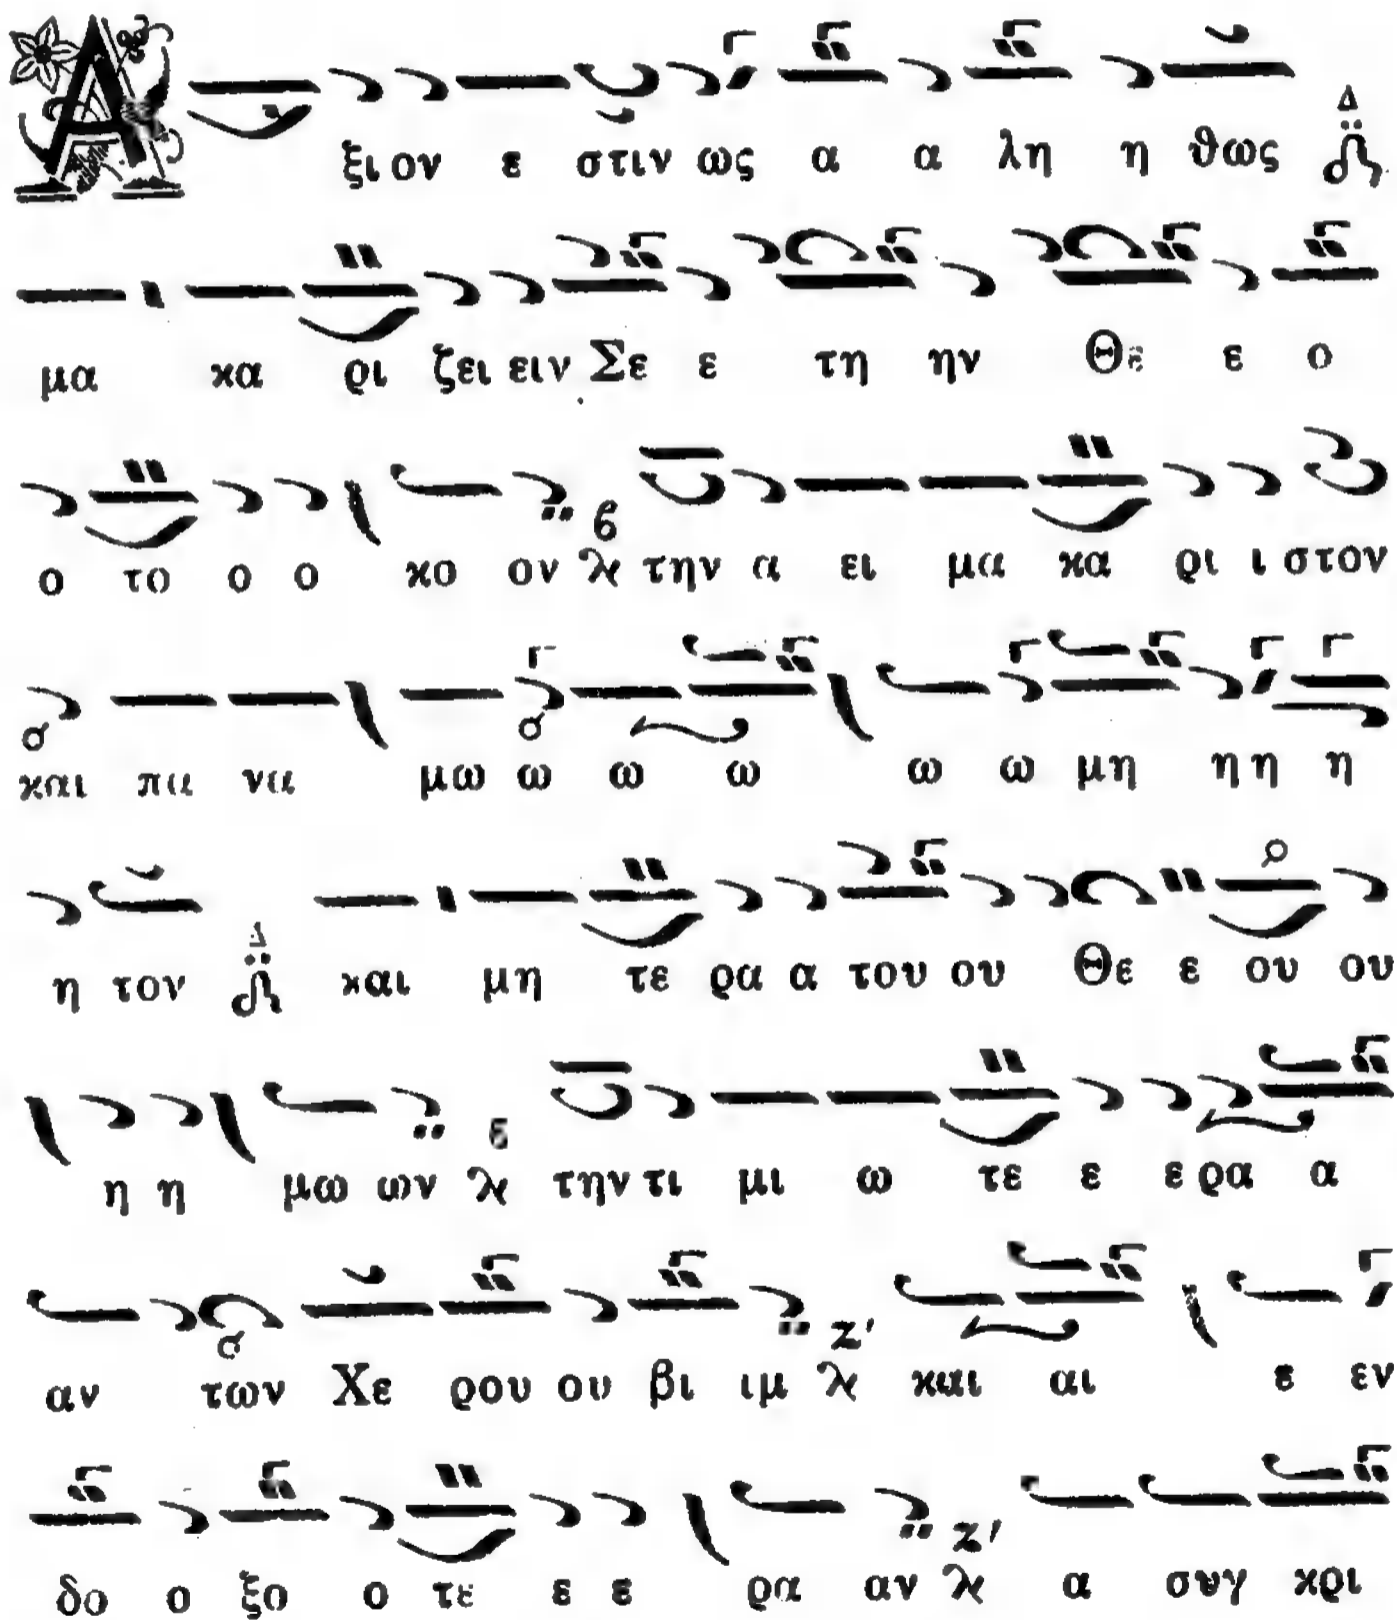 Α ξι ον ε στιν ως α α λη η θως Δ
μα κα ρι ζει ειν Σε ε τη ην Θε ε ο
ο το ο ο κο ον β την α ει μα κα ρι ι στον
και πα να μω ω ω ω ω ω μη η η η
η τον Δ και μη τε ρα α του ου Θε ε ου ου
η η μω ων β την τι μι ω τε ε ε ρα α
αν των Χε ρου ου βι ιμ Ζ' και αι ε εν
δο ο ξο ο τε ε ε ρα αν Ζ' α συγ κρι